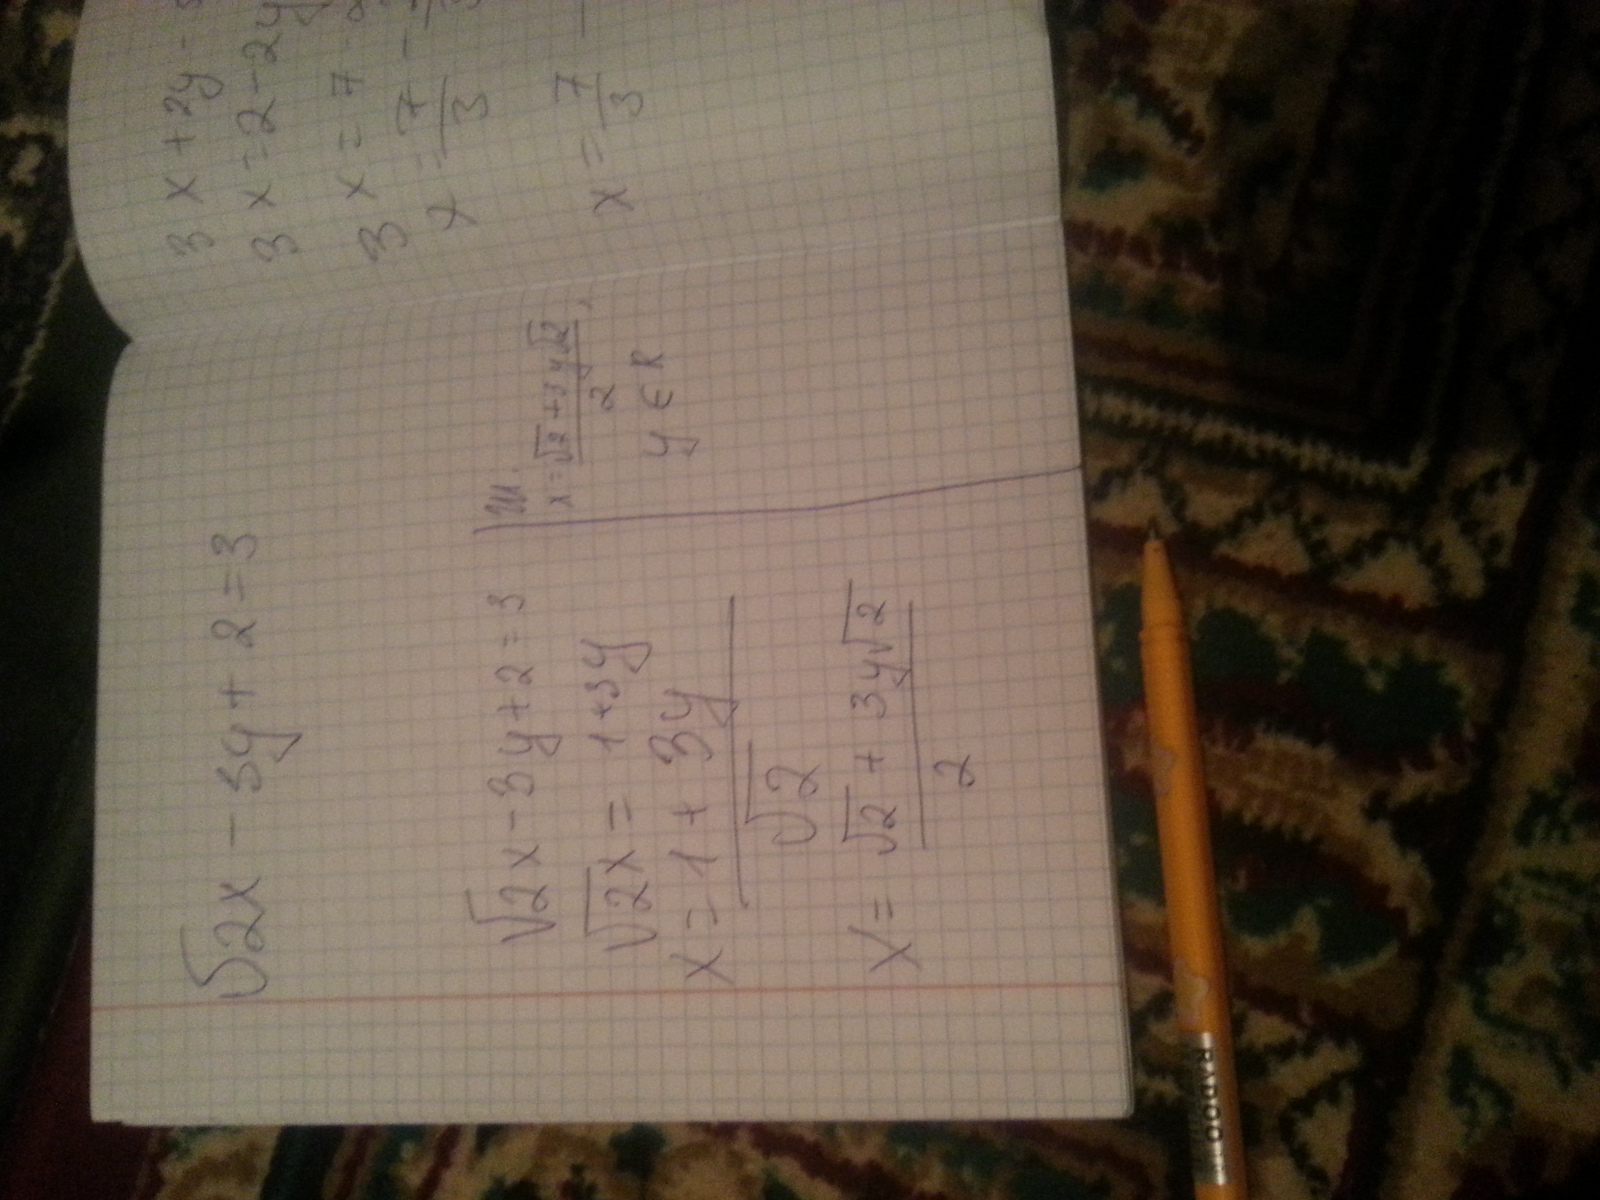 √2x - 3y + 2 = 3
√2x - 3y + 2 = 3
√2x = 1 + 3y
x = 1 + 3y
√2
x = √2 + 3y√2
2
x = √2 + 3y√2,
2
y ∈ R
3x + 2y
3x = 2 - 2y
3x = 7
x = 7 -
3
x = 7
3